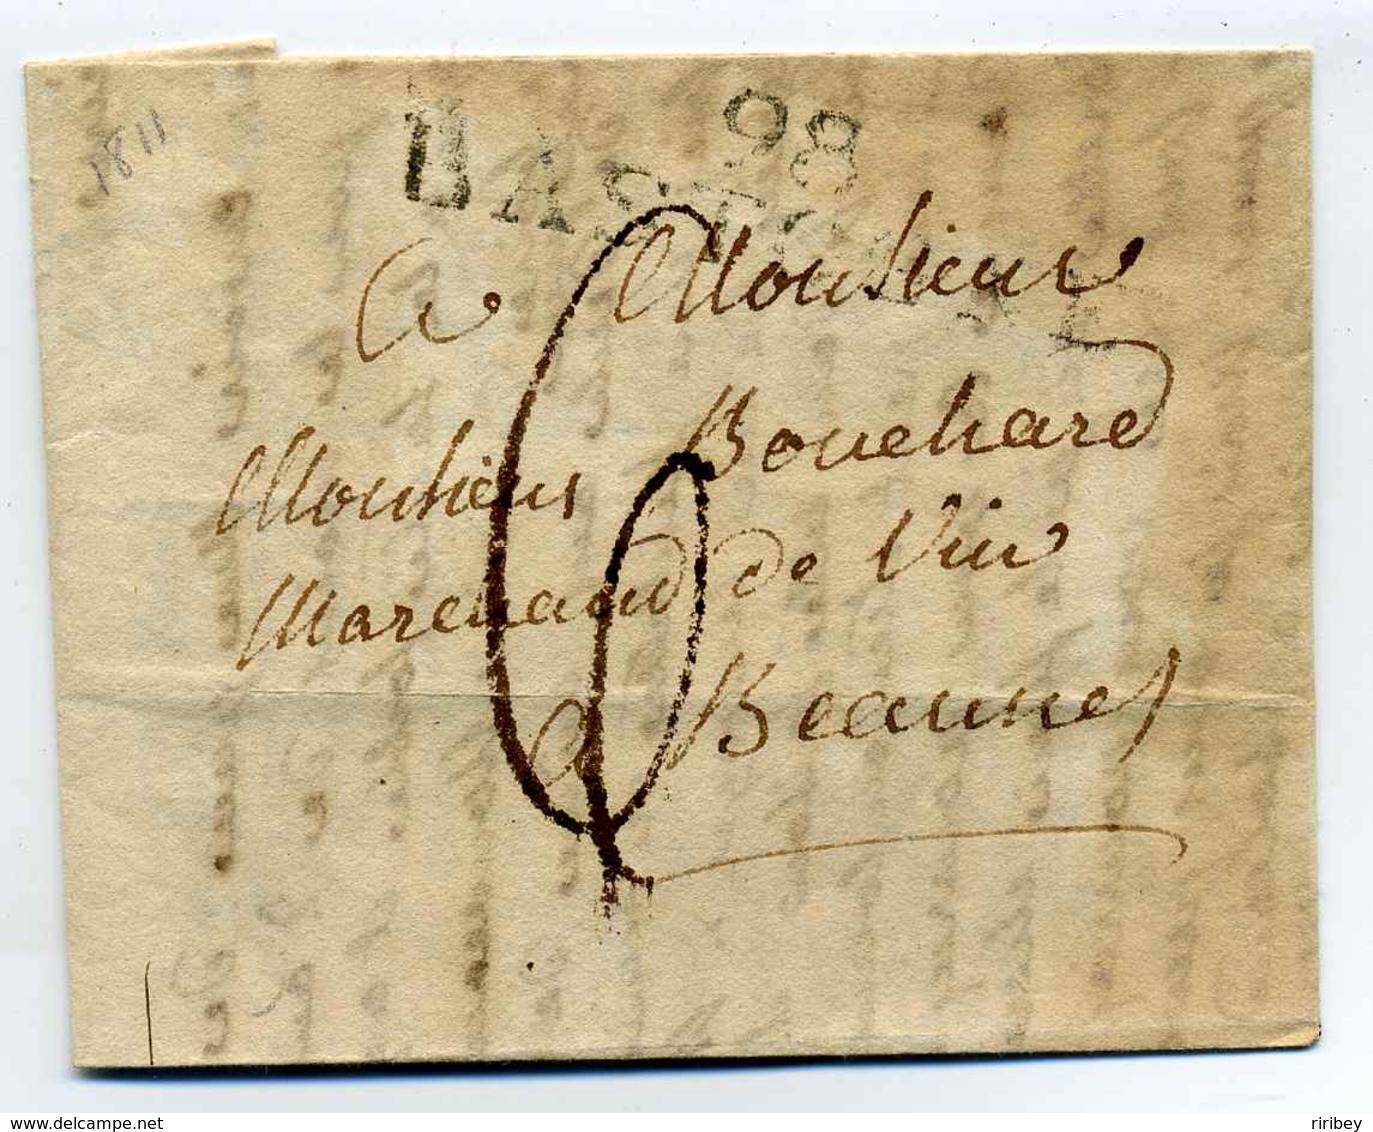 1811
98
BASTOGNE
a Monsieur
Monsieur Bouchard
Marchand de Vin
a Beaune
6
www.delcampe.net
riribey